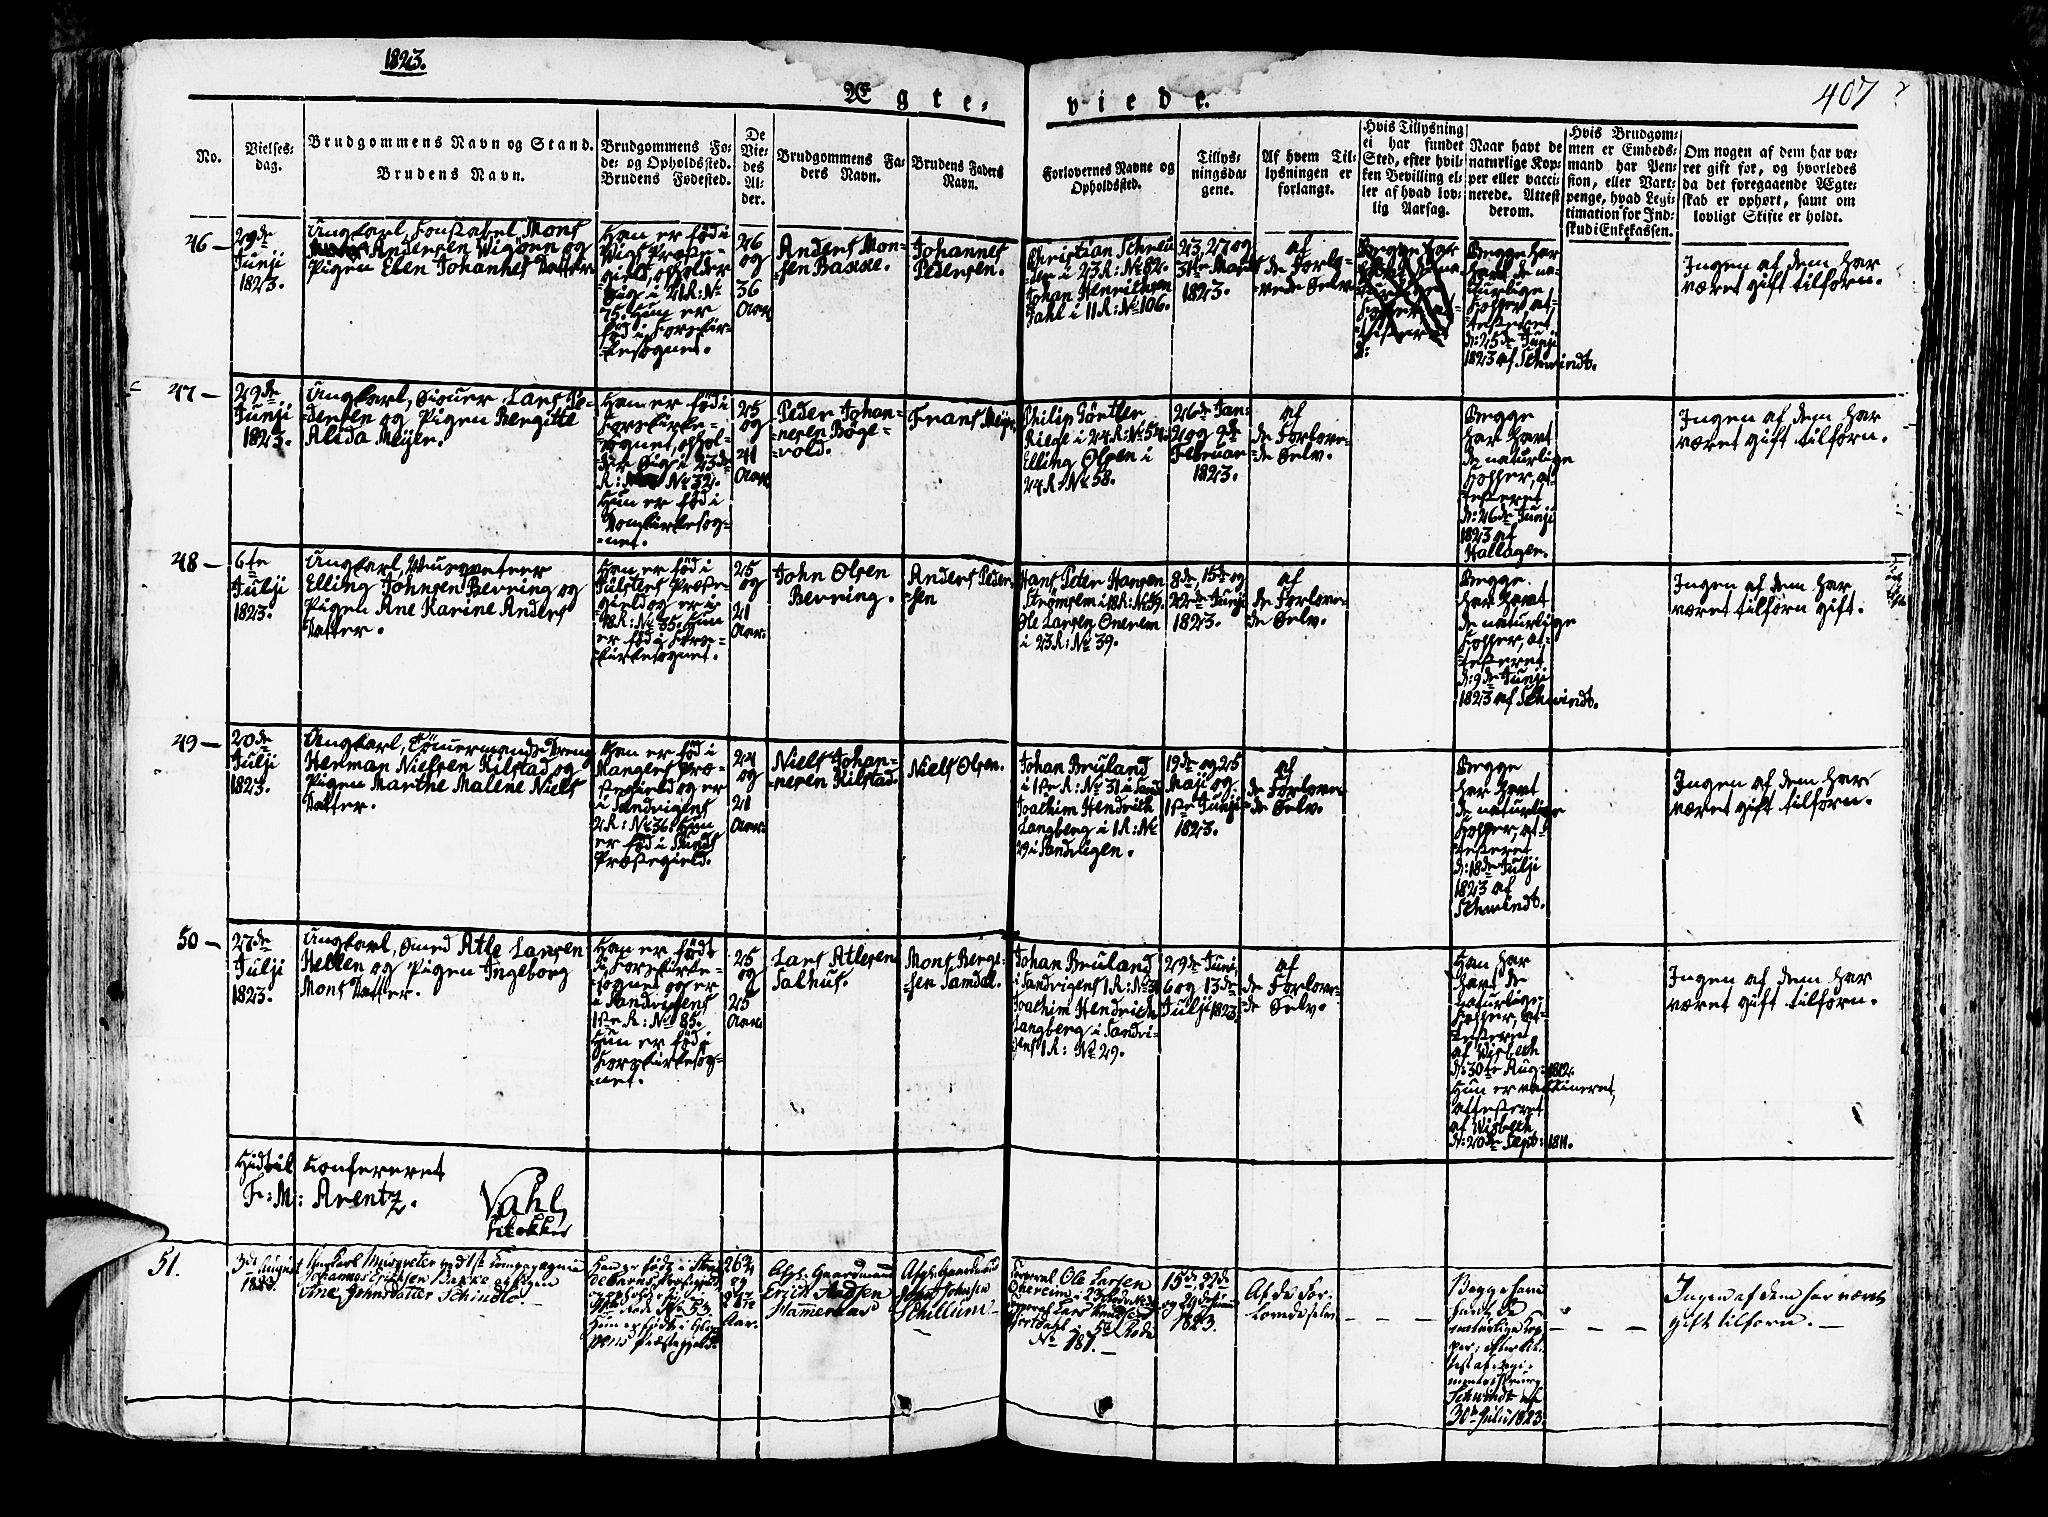 1823.
Ægte-
viede.
407
No.
Vielses-
dag.
Brudgommens Navn og Stand.
Brudens Navn.
Brudgommens Fø-
de- og Opholdssted.
Brudens Fødested.
De
Vie-
des
Al-
der.
Brudgommens Fa-
ders Navn.
Brudens Faders
Navn.
Forlovernes Navne og
Opholdssted.
Tillys-
ningsda-
gene.
Af hvem Til-
lysningen er
forlangt.
Hvis Tillysning
ei har fundet
Sted, efter hvil-
ken Bevilling el-
ler af hvad lov-
lig Aarsag.
Naar havt de
naturlige Kop-
per eller vacci-
nerede. Attest
derom.
Hvis Brudgom-
men er Embeds-
mand har Pen-
sion, eller Vart-
penge, hvad Legi-
timation for Ind-
skud i Enkekassen.
Om nogen af dem har væ-
ret gift før, og hvorledes
da det foregaaende Ægte-
skab er ophørt, samt om
lovligt Skifte er holdt.
46 –
29de
Junji
1823.
Ungkarl, Constabel Mons
Andersen Wigøen og
Pigen Elen Johannes Datter
Han er föd i
Wigs Præste-
gield, opholder
sig i 21 R: No
75. Hun er
föd i Korskir-
kesognet.
26
og
36
Aar.
Anders Mon-
sen Bakke.
Johannes
Pedersen.
Christian Schreu-
der i 23 R: No 82.
Johan Henrichsen
Dahl i 11 R: No 106.
23, 27 og
31te Marts
1823.
af
de Forlo-
vede Selv.
Begge har
havt de na-
turlige
Kopper, at-
testeret
d: 25de Junji
1823 af Schwindt.
Ingen af dem har
været gift tilforn.
47 –
29de
Junji
1823.
Ungkarl, Siouer Lars Pe-
dersen og Pigen Bergitte
Alida Meyer.
Han er föd i
Korskirke-
sognet, ophol-
der sig i 23de
R: No 32.
Hun er föd i
Domkirkesog-
net.
25
og
41
Aar.
Peder Johan-
nesen Böge-
vold.
Frans Meyer.
Philip Görtler
Riege i 24 R: No 54.
Elling Olsen i
24 R: No 58.
26de Jan:
2 og 9de
Februar
1823.
af
de Forlove-
de Selv.
Begge
har havt
de naturlige
Kopper, at-
testeret
d: 26de Junji
1823 af
Hallager.
Ingen af dem har
været gift tilforn.
48 –
6te
Julji
1823.
Ungkarl, Musqveteer
Elling Johnsen Bevring og
Pigen Ane Karine Anders
Datter.
Han er föd i
Jülsters Præste-
gield og er i
18 R: No 35. Hun
er föd i Kors-
kirkesognet.
25
og
21
Aar.
John Olsen
Bevring.
Anders Peder-
sen
Hans Peter Hansen
Strömsem i 18 R: No 59.
Ole Larsen Qverem
i 23 R: No 39.
8de, 15de og
22de Junji
1823.
af
de Forlove-
de Selv.
Begge
har havt
de naturlige
Kopper, at-
testeret
d: 9de Junji
1823 af Schwindt.
Ingen af dem har
været tilforn gift.
49 –
20de
Julji
1823.
Ungkarl, Tömermands Dreng
Herman Nielsen Kilstad og
Pigen Marthe Malene Niels
Datter.
Han er föd i
Mangers Præ-
stegield og er
i Sandvigens
2 R: No 36. Hun
er föd i Sunds
Præstegield.
24
og
21
Aar.
Niels Johan-
nesen Kilstad.
Niels Olsen.
Johan Bruland
i 1ste R: No 31 i Sand
Joachim Hendrich
Langberg i 1 R: No
29 i Sandvigen.
19de og 25
Maji og
1ste Junji
1823.
af
de Forlove-
de Selv.
Begge
har havt
de naturlige
Kopper, at-
testeret
d: 18de Julji
1823 af
Schwindt.
Ingen af dem har
været gift tilforn.
50 –
27de
Julji
1823.
Ungkarl, Smed Atle Larsen
Hellen og Pigen Ingeborg
Mons Datter.
Han er födt
i Korskirke-
sognet og er
i Sandvigens
1ste R: No 85.
Hun er föd i
Korskirkesog-
net.
25
og
25
Aar.
Lars Atlesen
Salhus.
Mons Berge-
sen Samdal.
Johan Bruland
i Sandvigens 1 R: No 31
Joachim Hendrich
Langberg i Sandvi-
gens 1 R: No 29.
29de Juni,
6 og 13de
Julji 1823.
af
de Forlove-
de Selv.
Han har
havt de
naturlige
Kopper, at-
testeret
af Wisbech
d: 30te Aug: 1812.
Hun er vaccineret,
attesteret
af Wisbech
d: 20de Sept: 1811.
Ingen af dem har
været gift tilforn.
Hidtil Confereret
Fr: M: Arentz.
Vahl,
Klokker
51.
3de August
1823.
Ungkarl Musqveteer ved 1ste Compagnie
Johannes Ericksen Bakke og Pigen
Ane Johnsdatter Schindlo.
Aar.
Erick Knudsen
Hammeraas
Corporal Ole Larsen
Qverem i 23 Rode No 39
No 181.
15de, 22de
og 29de Juni
1823.
Af de For-
lovede selv.
Begge have
havt de
naturlige Kop-
per, efter At-
test af Regi-
mentschirurg
Schwindt af
30te Julii 1823.
Ingen af dem har været
gift tilforn.